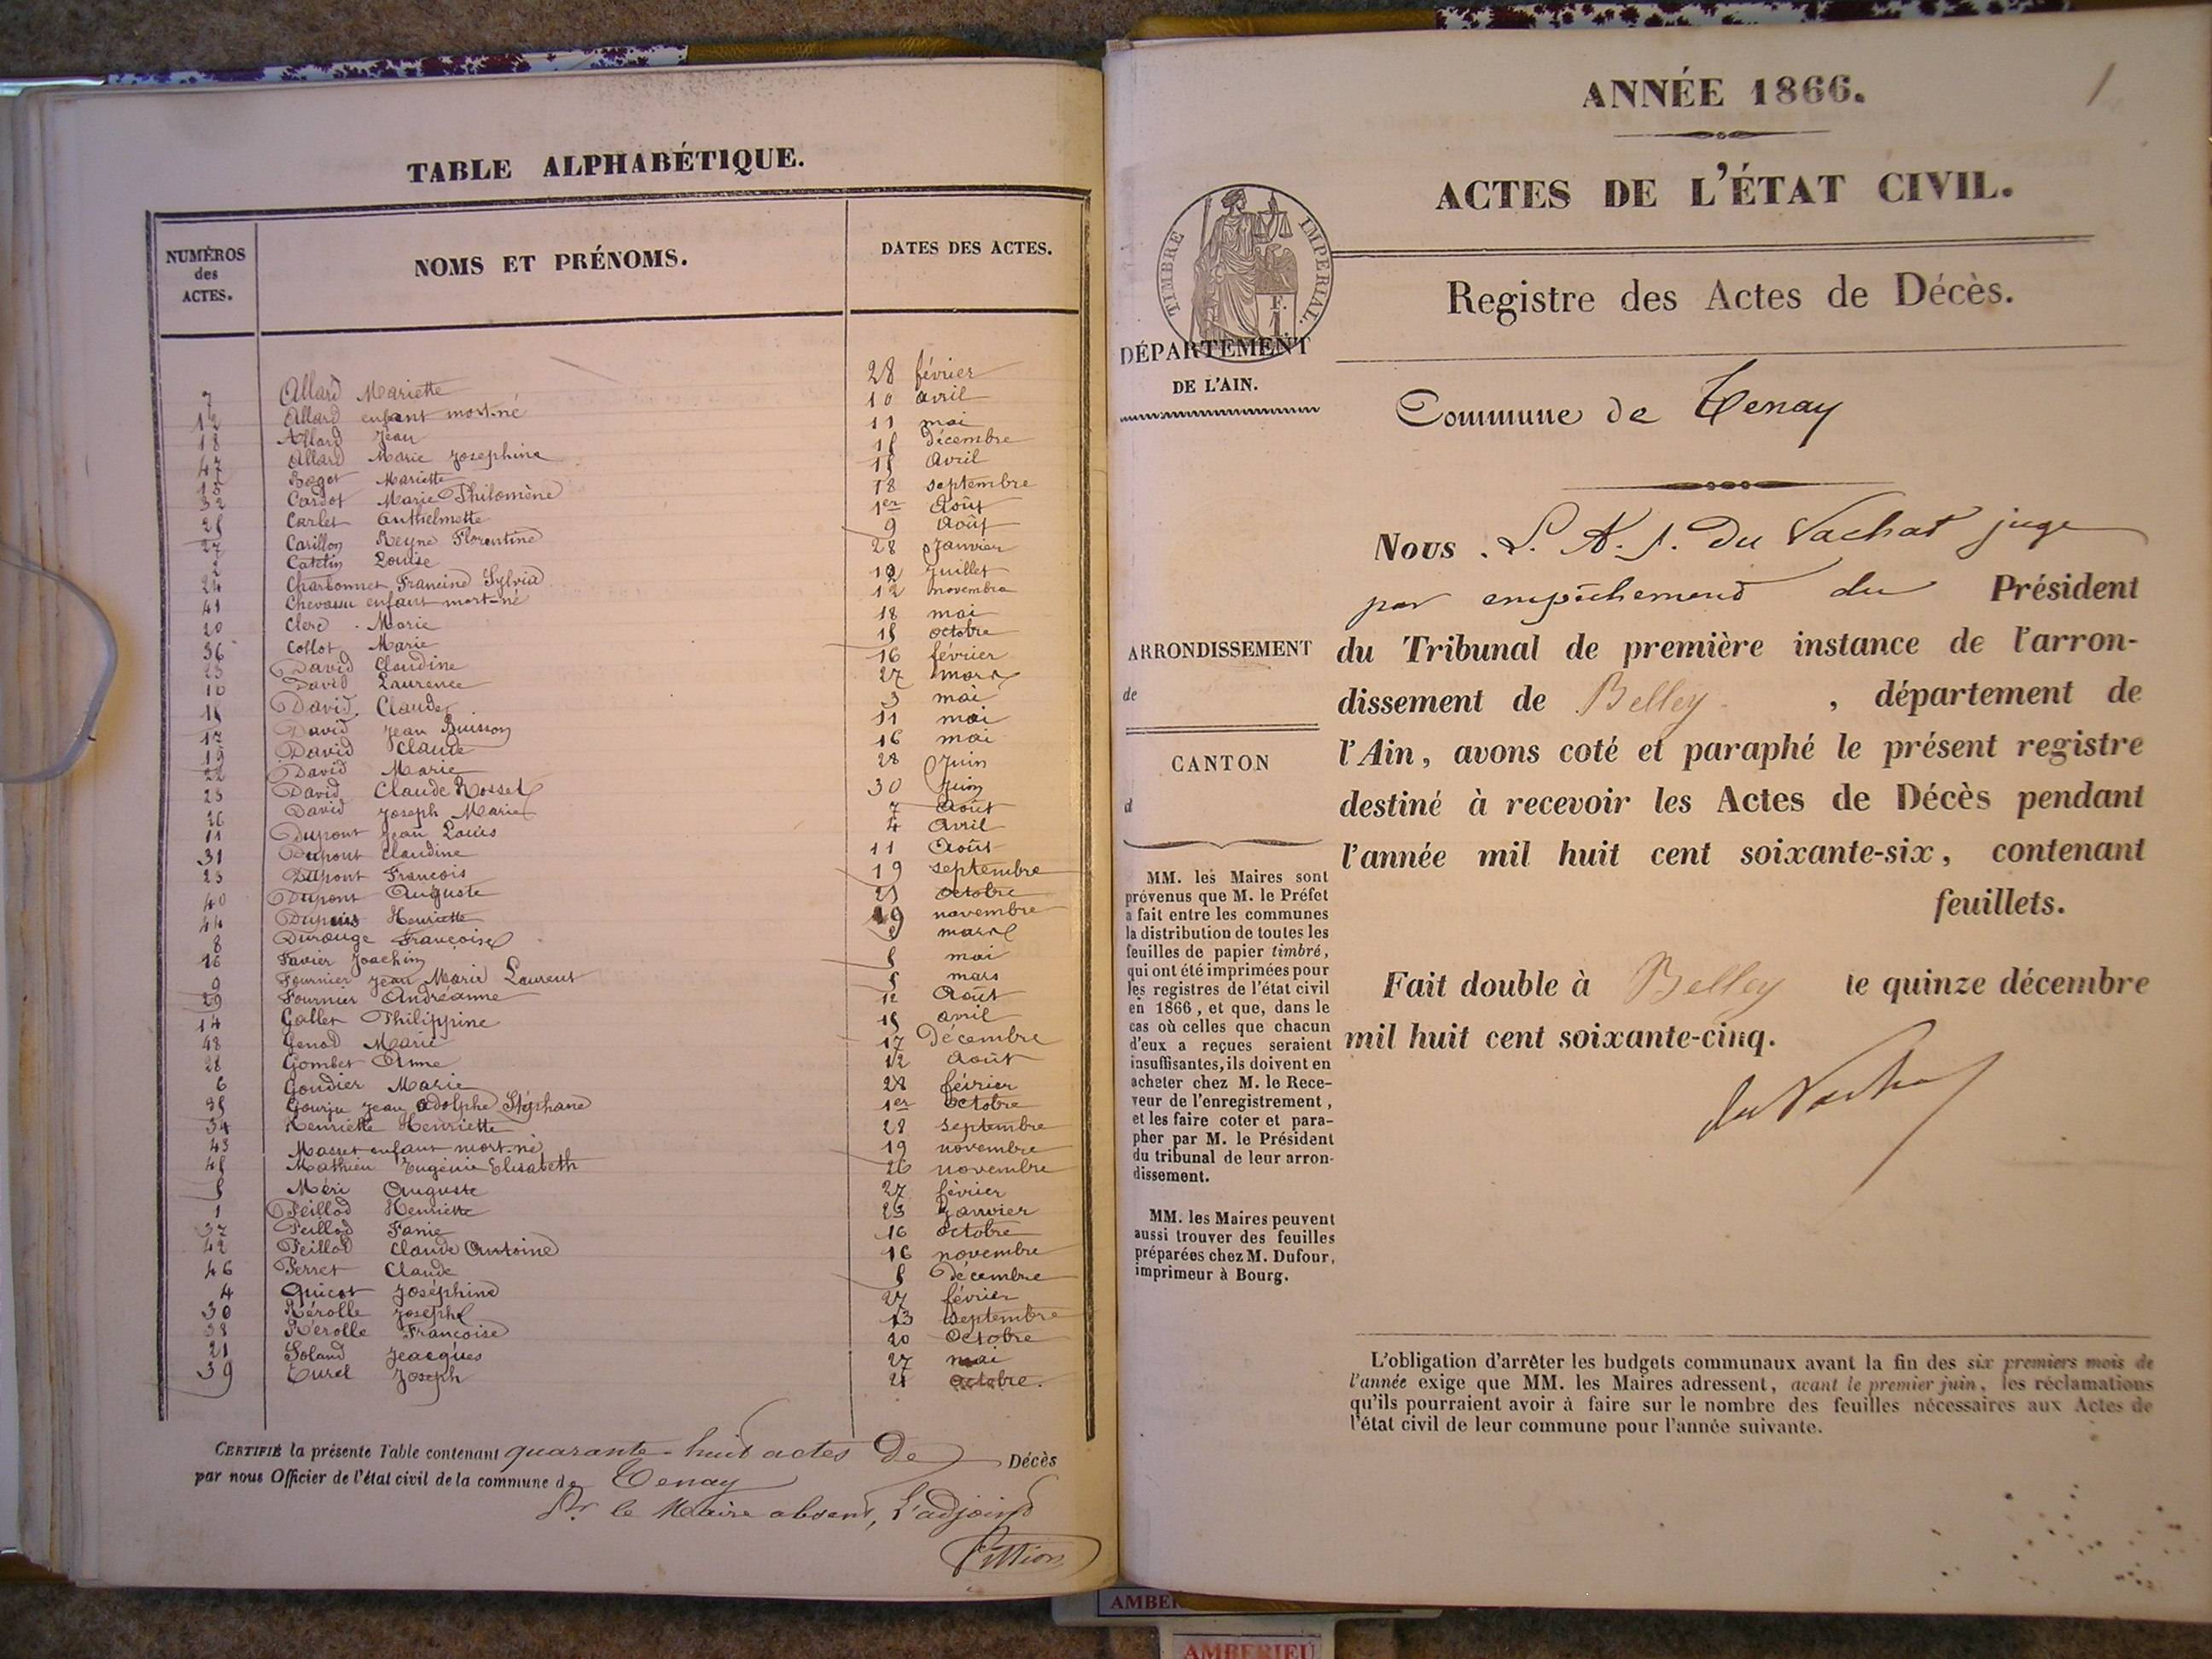 TABLE ALPHABÉTIQUE.
NUMÉROS des ACTES.
NOMS ET PRÉNOMS.
DATES DES ACTES.
7 Allard Mariette 28 février
12 Allard enfant mort-né 10 avril
18 Allard Jean 11 mai
47 Allard Marie Josephine 15 décembre
15 Boget Mariette 15 Avril
32 Cardot Marie Philomène 18 septembre
25 Carlet Anthelmette 1er Août
27 Carillon Reyne Florentine 9 Août
2 Catelin Louise 28 Janvier
24 Charbonnet Francine Sylvia 12 Juillet
41 Chevassu enfant mort-né 12 novembre
20 Clerc Marie 18 mai
36 Collot Marie 15 octobre
David Claudine 16 février
10 David Laurence 27 mars
David Claude 3 mai
17 David Jean Buisson 11 mai
19 David Claude 16 mai
22 David Marie 28 Juin
23 David Claude Rosset 30 Juin
26 David Joseph Marie 7 Août
11 Dupont Jean Louis 4 Avril
31 Dupont Claudine 11 Août
Dupont François 19 septembre
40 Dupont Auguste 25 octobre
44 Dupuis Henriette 19 novembre
8 Durouge Françoise mars
16 Favier Joachim 5 mai
9 Fournier Jean Marie Laurent 5 mars
29 Fournier Andréanne 12 Août
14 Gallet Philippine 15 avril
48 Genod Marie 17 Décembre
28 Gombet Anne 12 Août
6 Goudier Marie 28 février
35 Gourju Jean Adolphe Stéphane 1er Octobre
34 Henriette Henriette 28 septembre
43 Masset enfant mort-né 19 novembre
45 Mathieu Eugénie Elisabeth 26 novembre
5 Méri Auguste 27 février
1 Peillod Henriette 25 Janvier
37 Peillod Fanie 16 octobre
42 Peillod Claude Antoine 16 novembre
46 Perret Claude 5 Décembre
4 Quicot Joséphine 27 février
30 Rérolle Joseph 13 septembre
38 Rérolle Françoise 20 Octobre
21 Soland Jeacques 27 mai
39 Turel Joseph 21 octobre.
CERTIFIÉ la présente Table contenant quarante-huit actes De Décès
par nous Officier de l'état civil de la commune de Tenay
Pr le Maire absent, L'adjoint
ANNÉE 1866.
1
ACTES DE L'ÉTAT CIVIL.
TIMBRE IMPERIAL.
F.
1
Registre des Actes de Décès.
DÉPARTEMENT
DE L'AIN.
Commune de Tenay
Nous L. N. J. Du Vachat juge
par empêchement du Président
ARRONDISSEMENT
de
du Tribunal de première instance de l'arron-
dissement de Belley , département de
l'Ain, avons coté et paraphé le présent registre
destiné à recevoir les Actes de Décès pendant
l'année mil huit cent soixante-six, contenant
feuillets.
CANTON
d
MM. les Maires sont
prévenus que M. le Préfet
a fait entre les communes
la distribution de toutes les
feuilles de papier timbré,
qui ont été imprimées pour
les registres de l'état civil
en 1866, et que, dans le
cas où celles que chacun
d'eux a reçues seraient
insuffisantes, ils doivent en
acheter chez M. le Rece-
veur de l'enregistrement,
et les faire coter et para-
pher par M. le Président
du tribunal de leur arron-
dissement.
MM. les Maires peuvent
aussi trouver des feuilles
préparées chez M. Dufour,
imprimeur à Bourg.
Fait double à Belley le quinze décembre
mil huit cent soixante-cinq.
L'obligation d'arrêter les budgets communaux avant la fin des six premiers mois de
l'année exige que MM. les Maires adressent, avant le premier juin, les réclamations
qu'ils pourraient avoir à faire sur le nombre des feuilles nécessaires aux Actes de
l'état civil de leur commune pour l'année suivante.
AMBERIEU